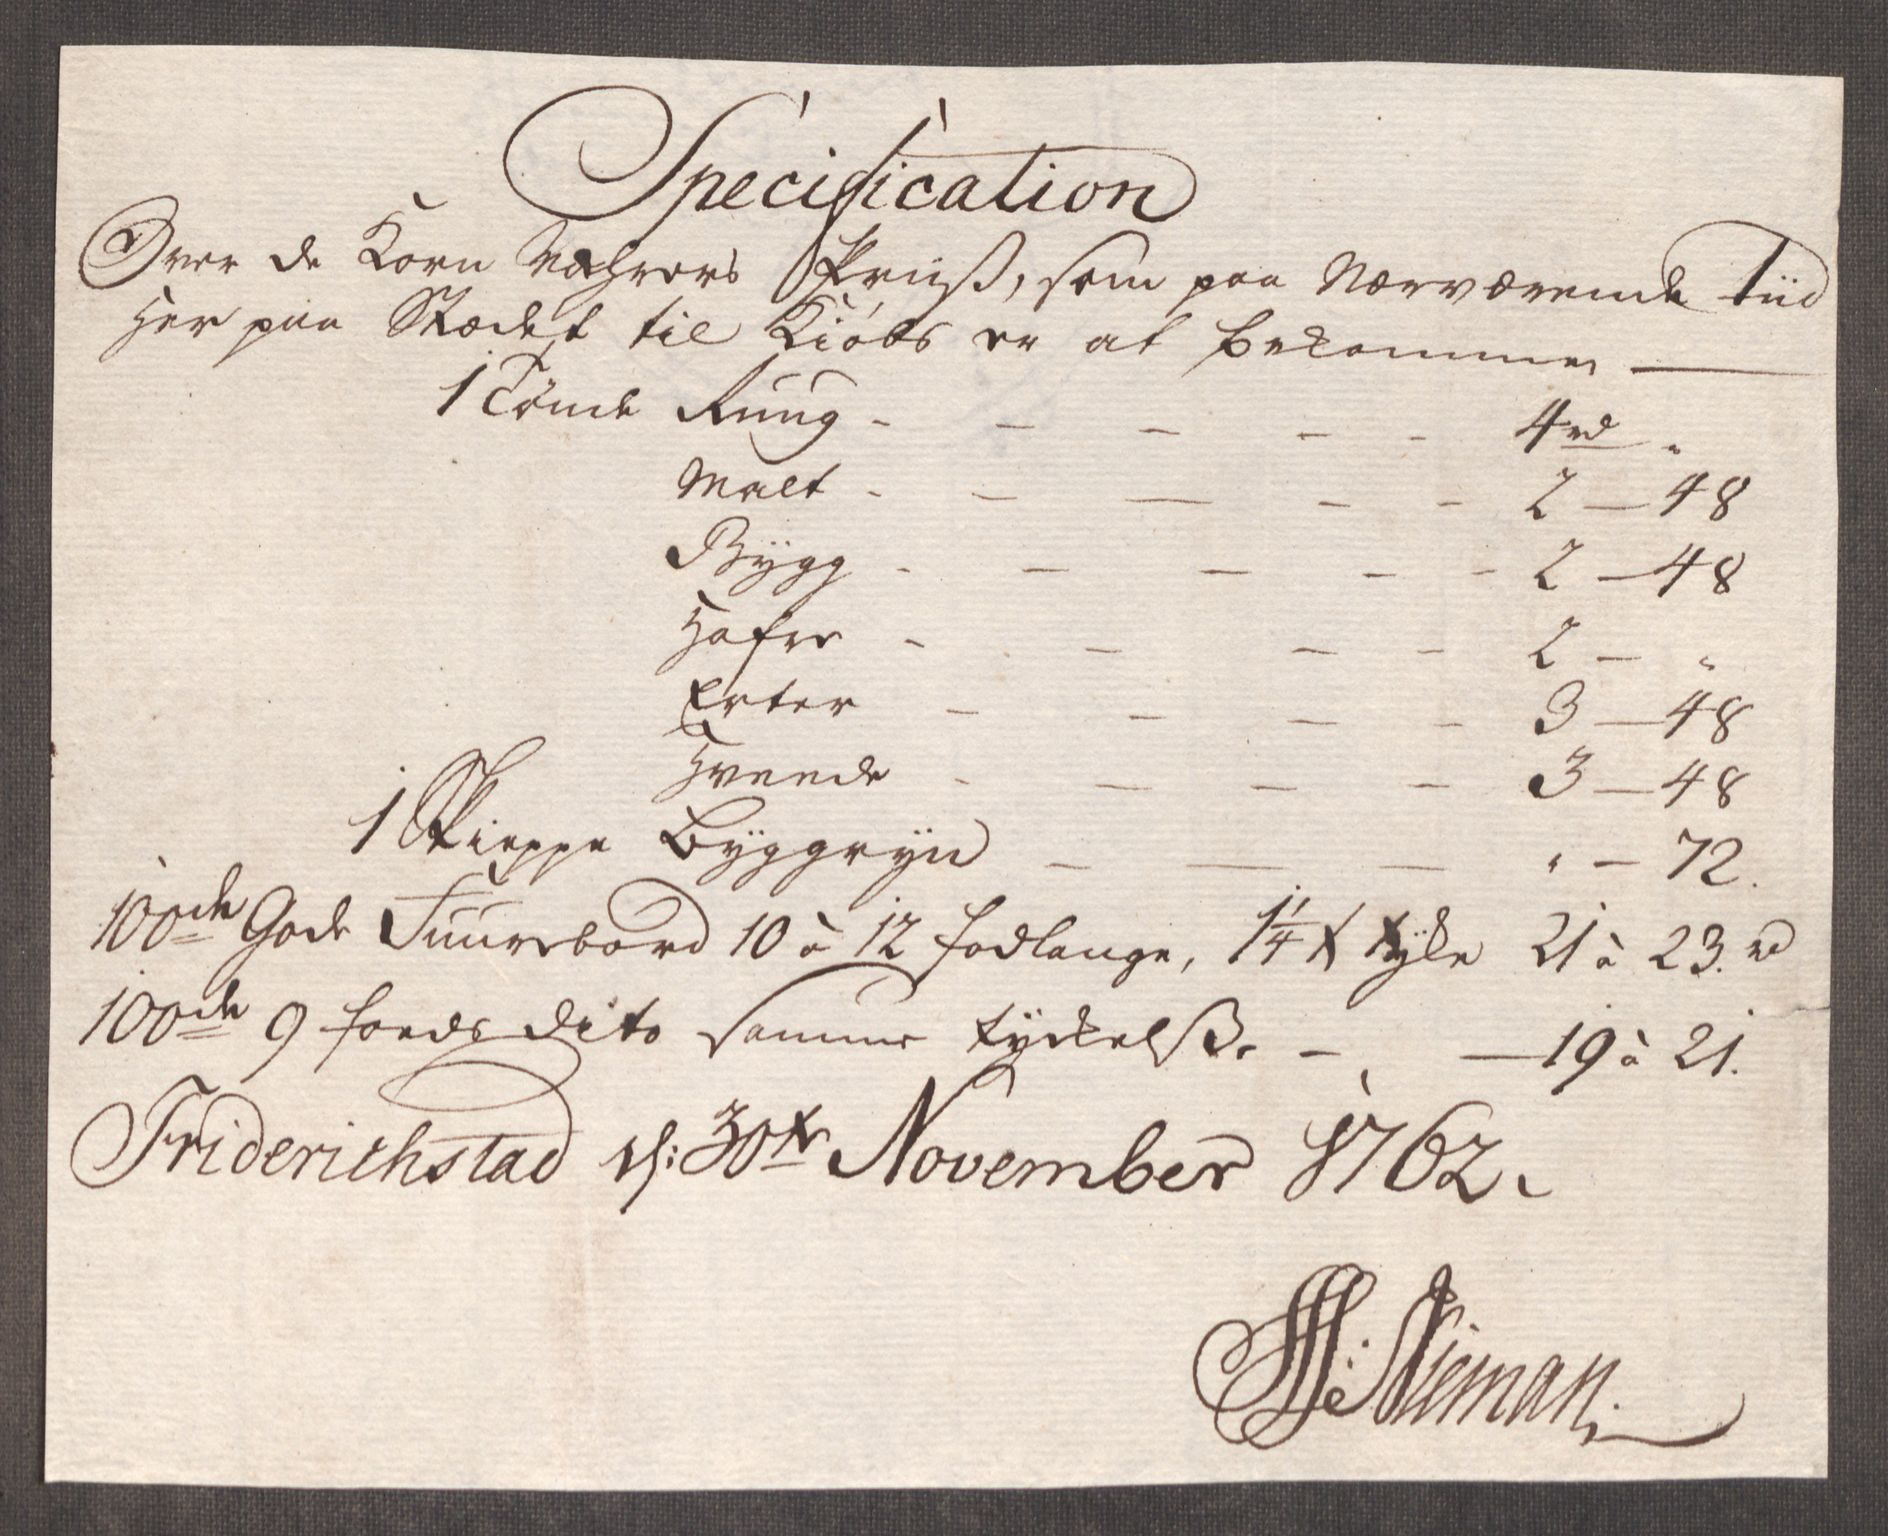 Specification
Over de Korn Wahrers Priiß, som paa Nærværende Tiid
Her paa Stædet til Kiøbs er at bekomme
1 Tønde Ruug - - - - - 4 rd "
Malt - - - - - 2 — 48
Bÿgg - - - - - 2 — 48
Hafre - - - - 2 — "
Erter - - - - 3 — 48
Hveede - - - - 3 — 48
1 Skieppe Bÿggrÿn - - - " — 72.
100de Gode Fuurebord 10 à 12 fodlange, 1 1/4 tÿke 21 à 23. rd
100de 9 foeds dito samme tÿckelße - — 19 à 21.
Friderichstad d: 30te November 1762.
Nieman